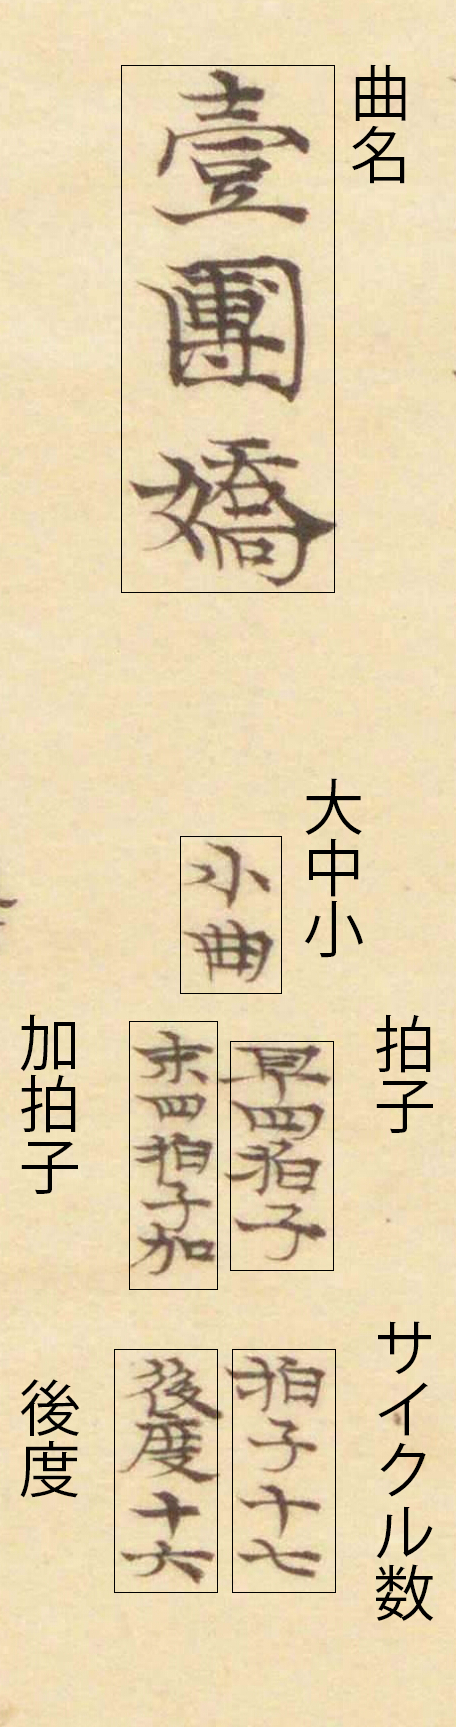 曲名
壹團嬌
大中小
小曲
拍子
早四拍子
加拍子
末四拍子加
サイクル数
拍子十七
後度
後度十六